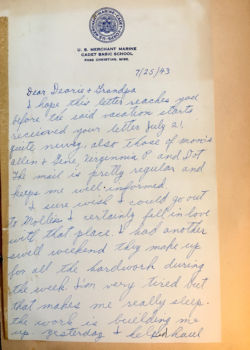 U. S. MERCHANT MARINE
CADET BASIC SCHOOL
PASS CHRISTIAN, MISS.
7/25/43
Dear Dearie & Grandpa
I hope this letter reaches you
before the said vacation starts
received your letter July 21
quite newsy, also those of mom's
allen & Gene, Virginnia P and Dot
The mail is pretty regular and
keeps me well informed.
I sure wish I could go out
to Mollies I certainly fell in love
with that place. I had another
swell weekend they make up
for all the hardwork during
the week. I'm very tired but
that makes me really sleep.
the work is building me
up. Yesterday I helped haul